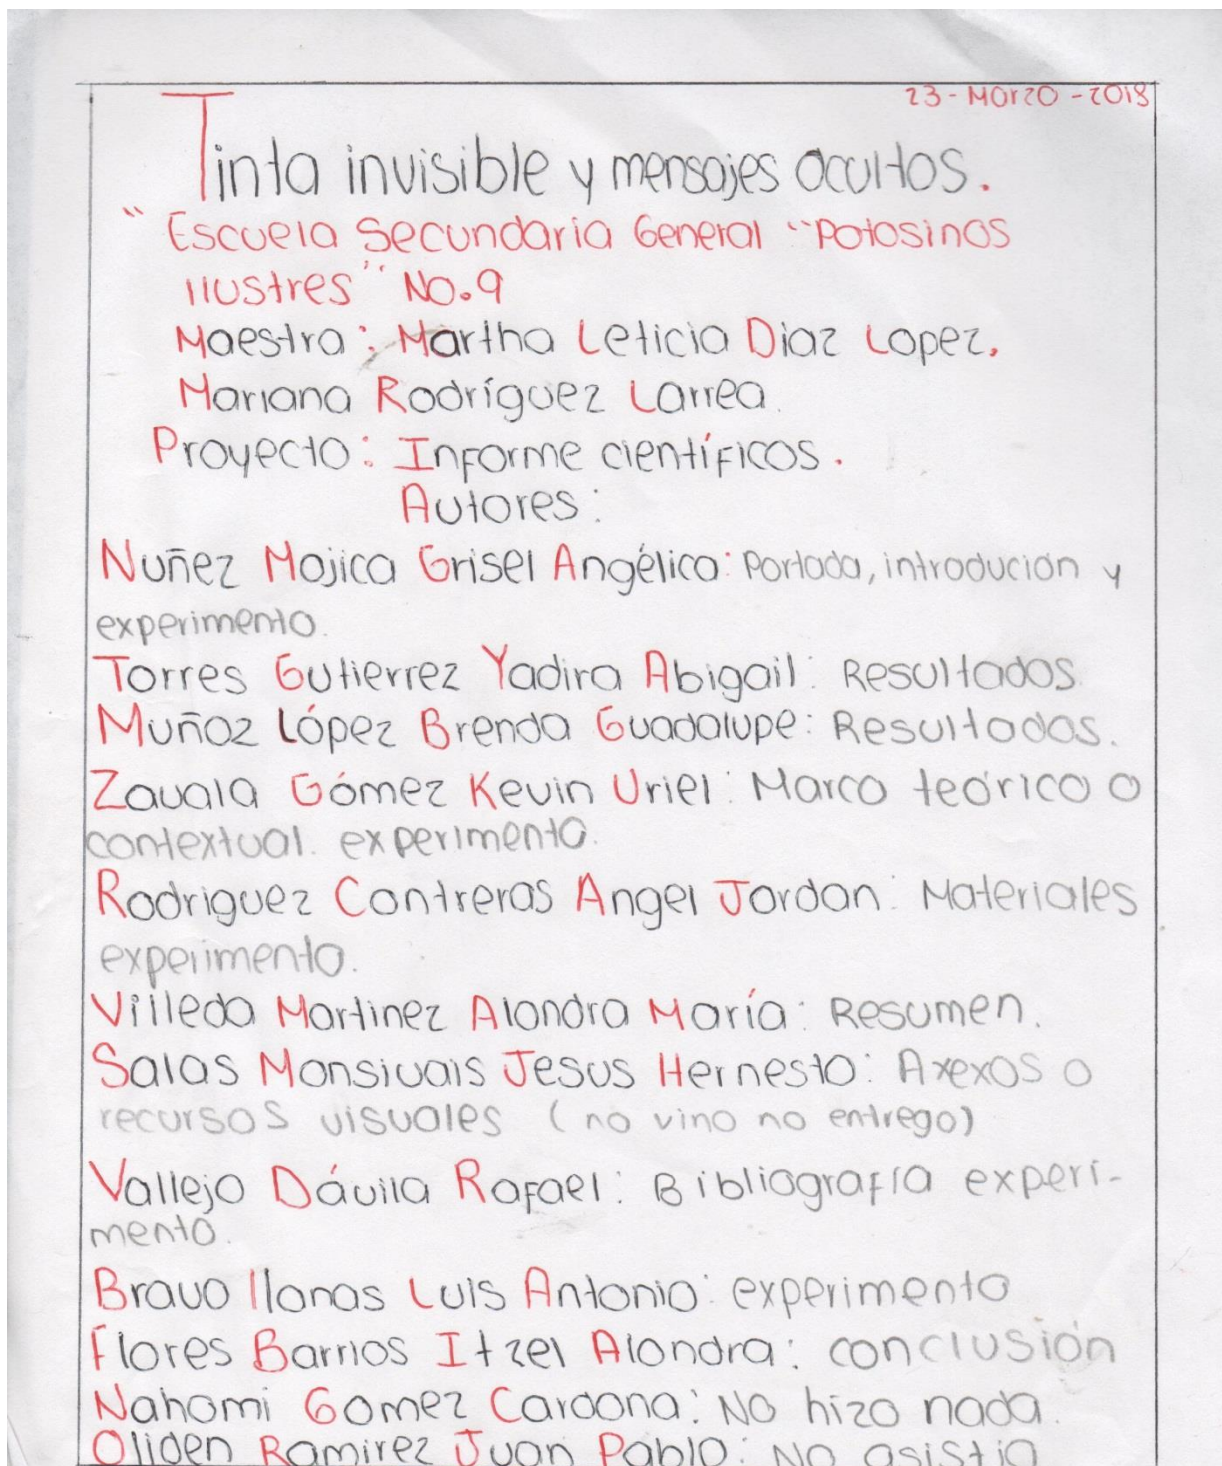 23-Marzo-2018
Tinta invisible y mensajes ocultos.
"Escuela Secundaria General "Potosinos
Ilustres" No.9
Maestra: Martha Leticia Diaz Lopez.
Mariana Rodríguez Larrea.
Proyecto: Informe científicos.
Autores:
Nuñez Mojica Grisel Angélica: Portada, introducion y
experimento.
Torres Gutierrez Yadira Abigail: Resultados.
Muñoz López Brenda Guadalupe: Resultados.
Zavala Gómez Kevin Uriel: Marco teórico o
contextual. experimento.
Rodriguez Contreras Angel Jordan: Materiales
experimento.
Villeda Martinez Alondra María: Resumen.
Salas Monsivais Jesus Hernesto: Axexos o
recursos visuales (no vino no entrego)
Vallejo Dávila Rafael: Bibliografía experi-
mento.
Bravo llanas Luis Antonio: experimento
Flores Barrios Itzel Alondra: conclusión
Nahomi Gomez Cardona: No hizo nada.
Oliden Ramirez Juan Pablo: No asistia